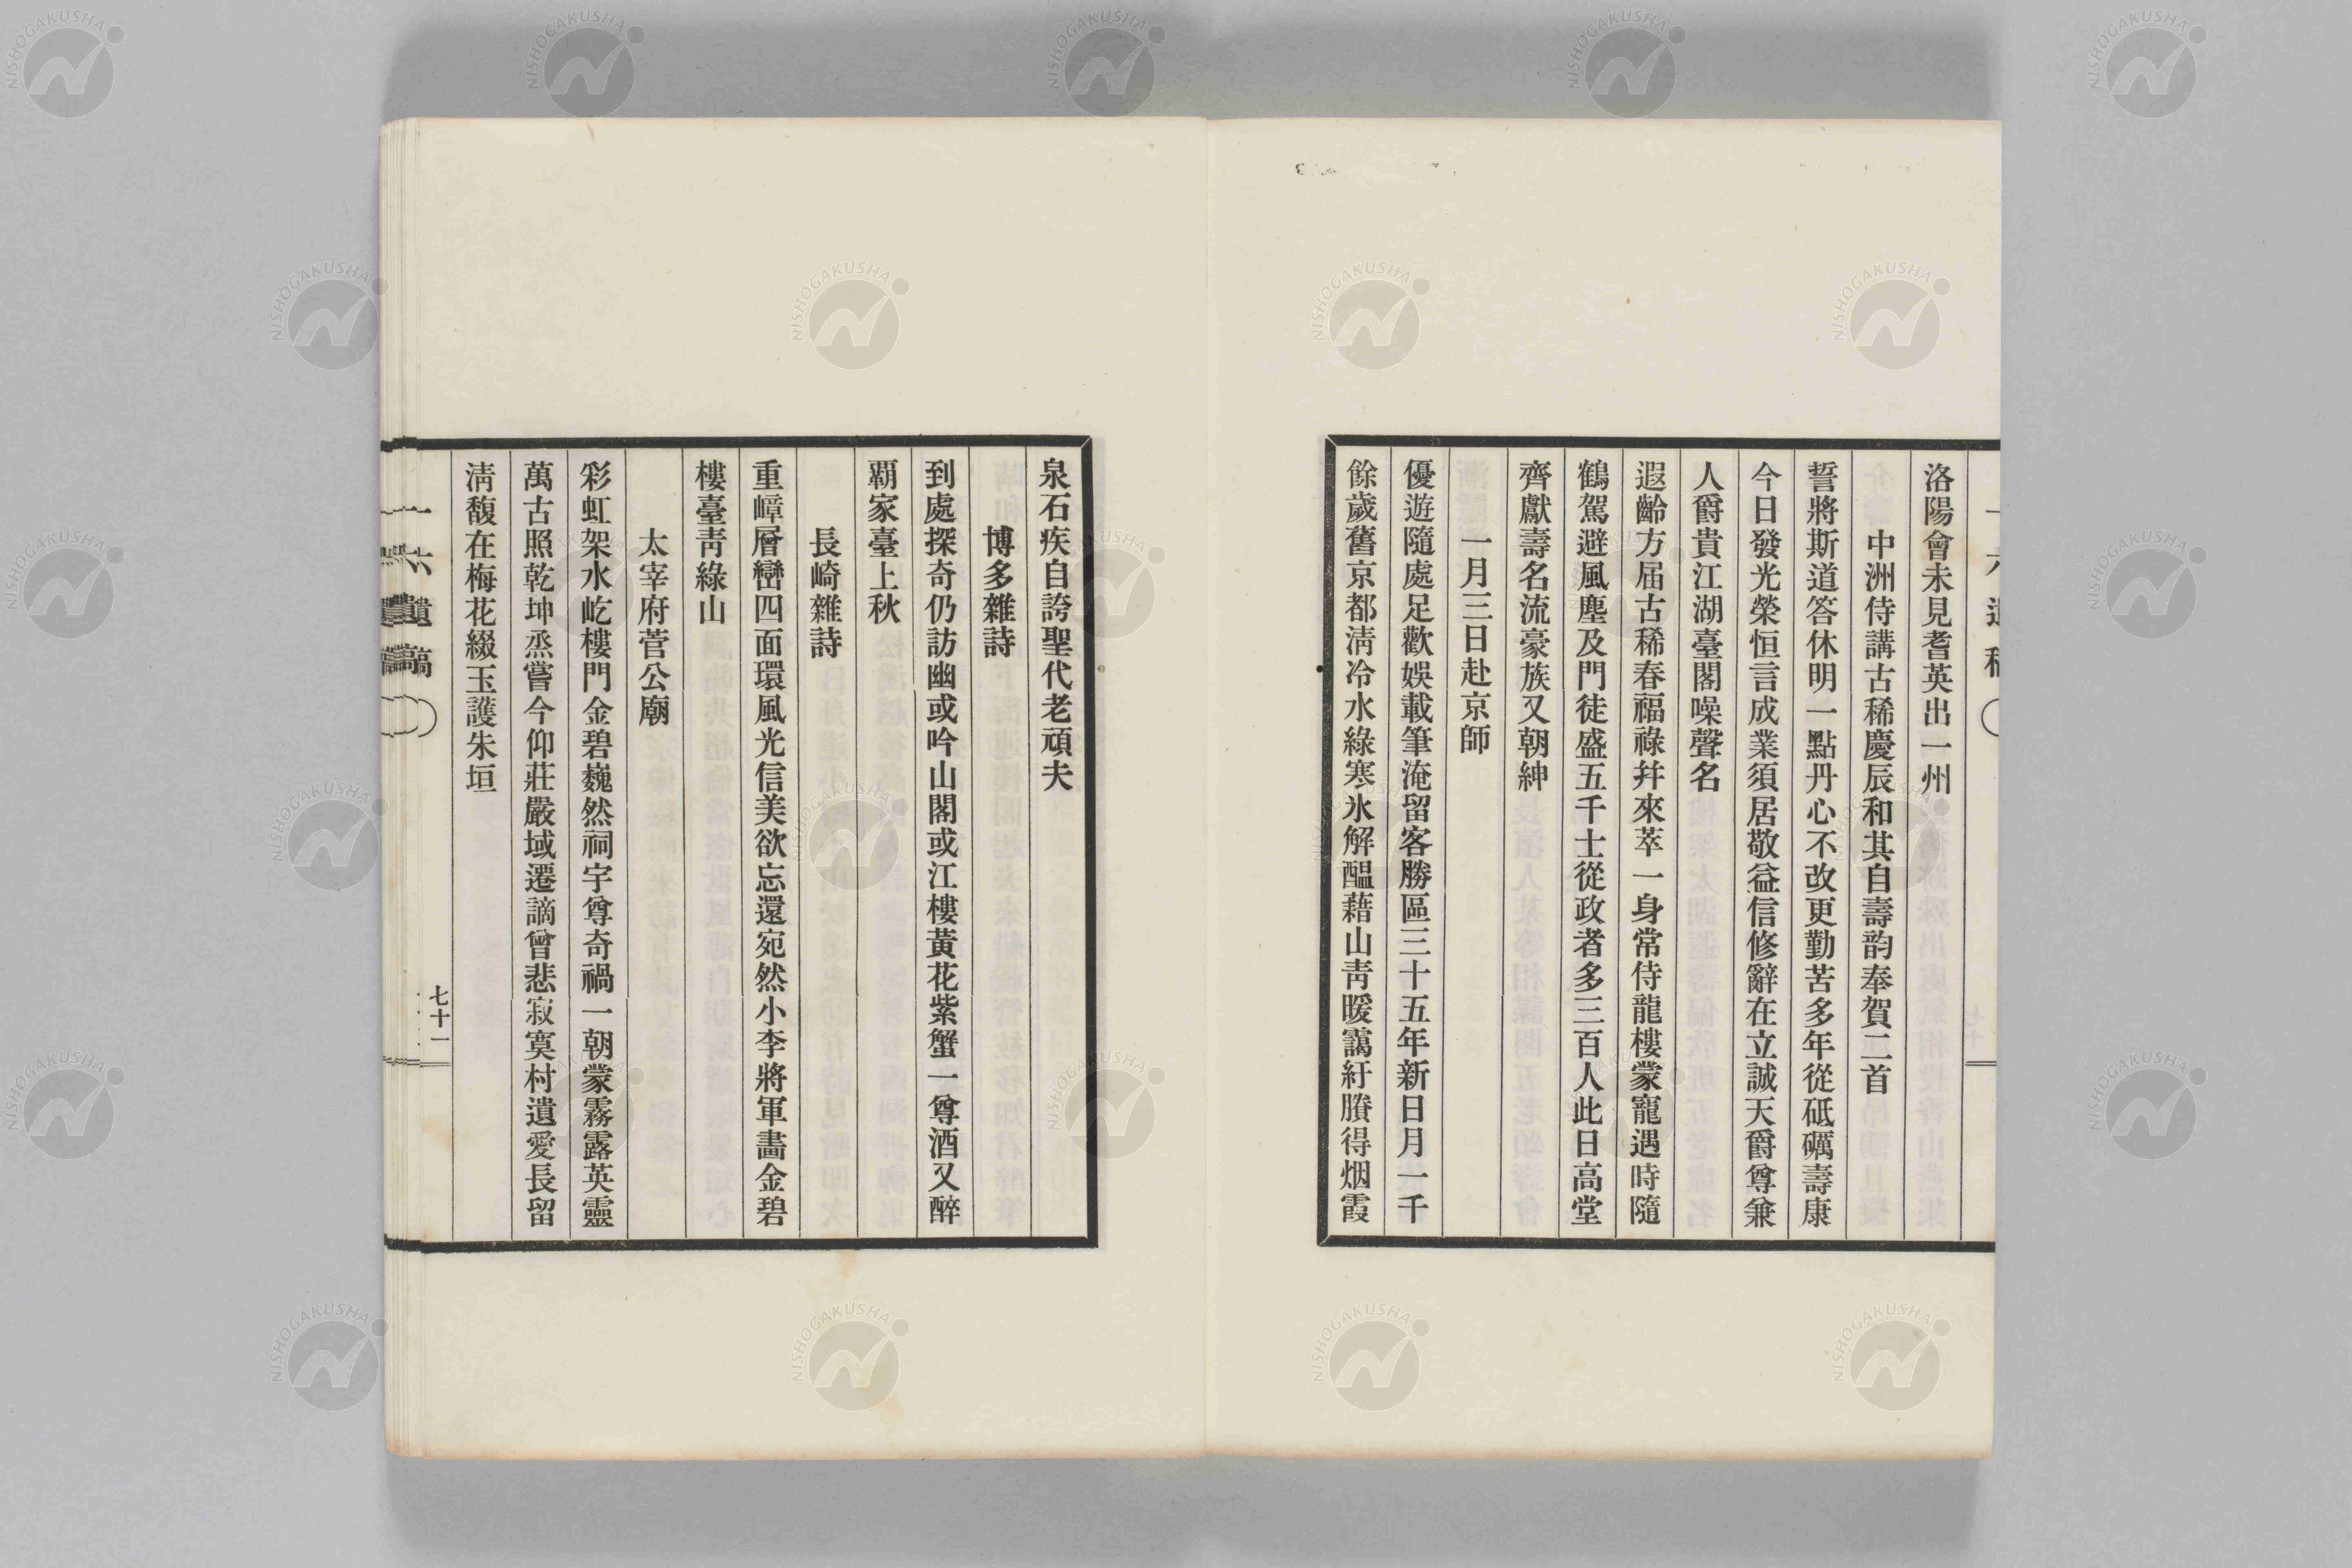 洛陽會未見耆英出一州
中洲侍講古稀慶辰和其自壽韵奉賀二首
誓將斯道答休明一點丹心不改更勤苦多年從砥礪壽康
今日發光榮恒言成業須居敬益信修辭在立誠天爵尊兼
人爵貴江湖臺閣噪聲名
遐齡方届古稀春福祿并來萃一身常侍龍樓蒙寵遇時隨
鶴駕避風塵及門徒盛五千士從政者多三百人此日高堂
齊獻壽名流豪族又朝紳
一月三日赴京師
優遊隨處足歡娛載筆淹留客勝區三十五年新日月一千
餘歲舊京都淸冷水綠寒氷解醞藉山靑暖靄紆賸得烟霞
泉石疾自誇聖代老頑夫
博多雜詩
到處探奇仍訪幽或吟山閣或江樓黃花紫蟹一尊酒又醉
覇家臺上秋
長崎雜詩
重嶂層巒四面環風光信美欲忘還宛然小李將軍畵金碧
樓臺靑綠山
太宰府菅公廟
彩虹架水屹樓門金碧巍然祠宇尊奇禍一朝蒙霧露英靈
萬古照乾坤烝嘗今仰莊嚴域遷謫曾悲寂寞村遺愛長留
淸馥在梅花綴玉護朱垣
一六遺稿
七十一
NISHOGAKUSHA